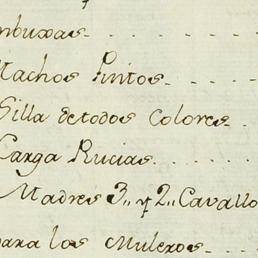 mbuxas - - - - -
Machos Pintos - - - -
Silla de todos Colores - -
Carga Rucias . . . . .
Madres 3,, y 2,, Cavallo
para los Muleros - - -